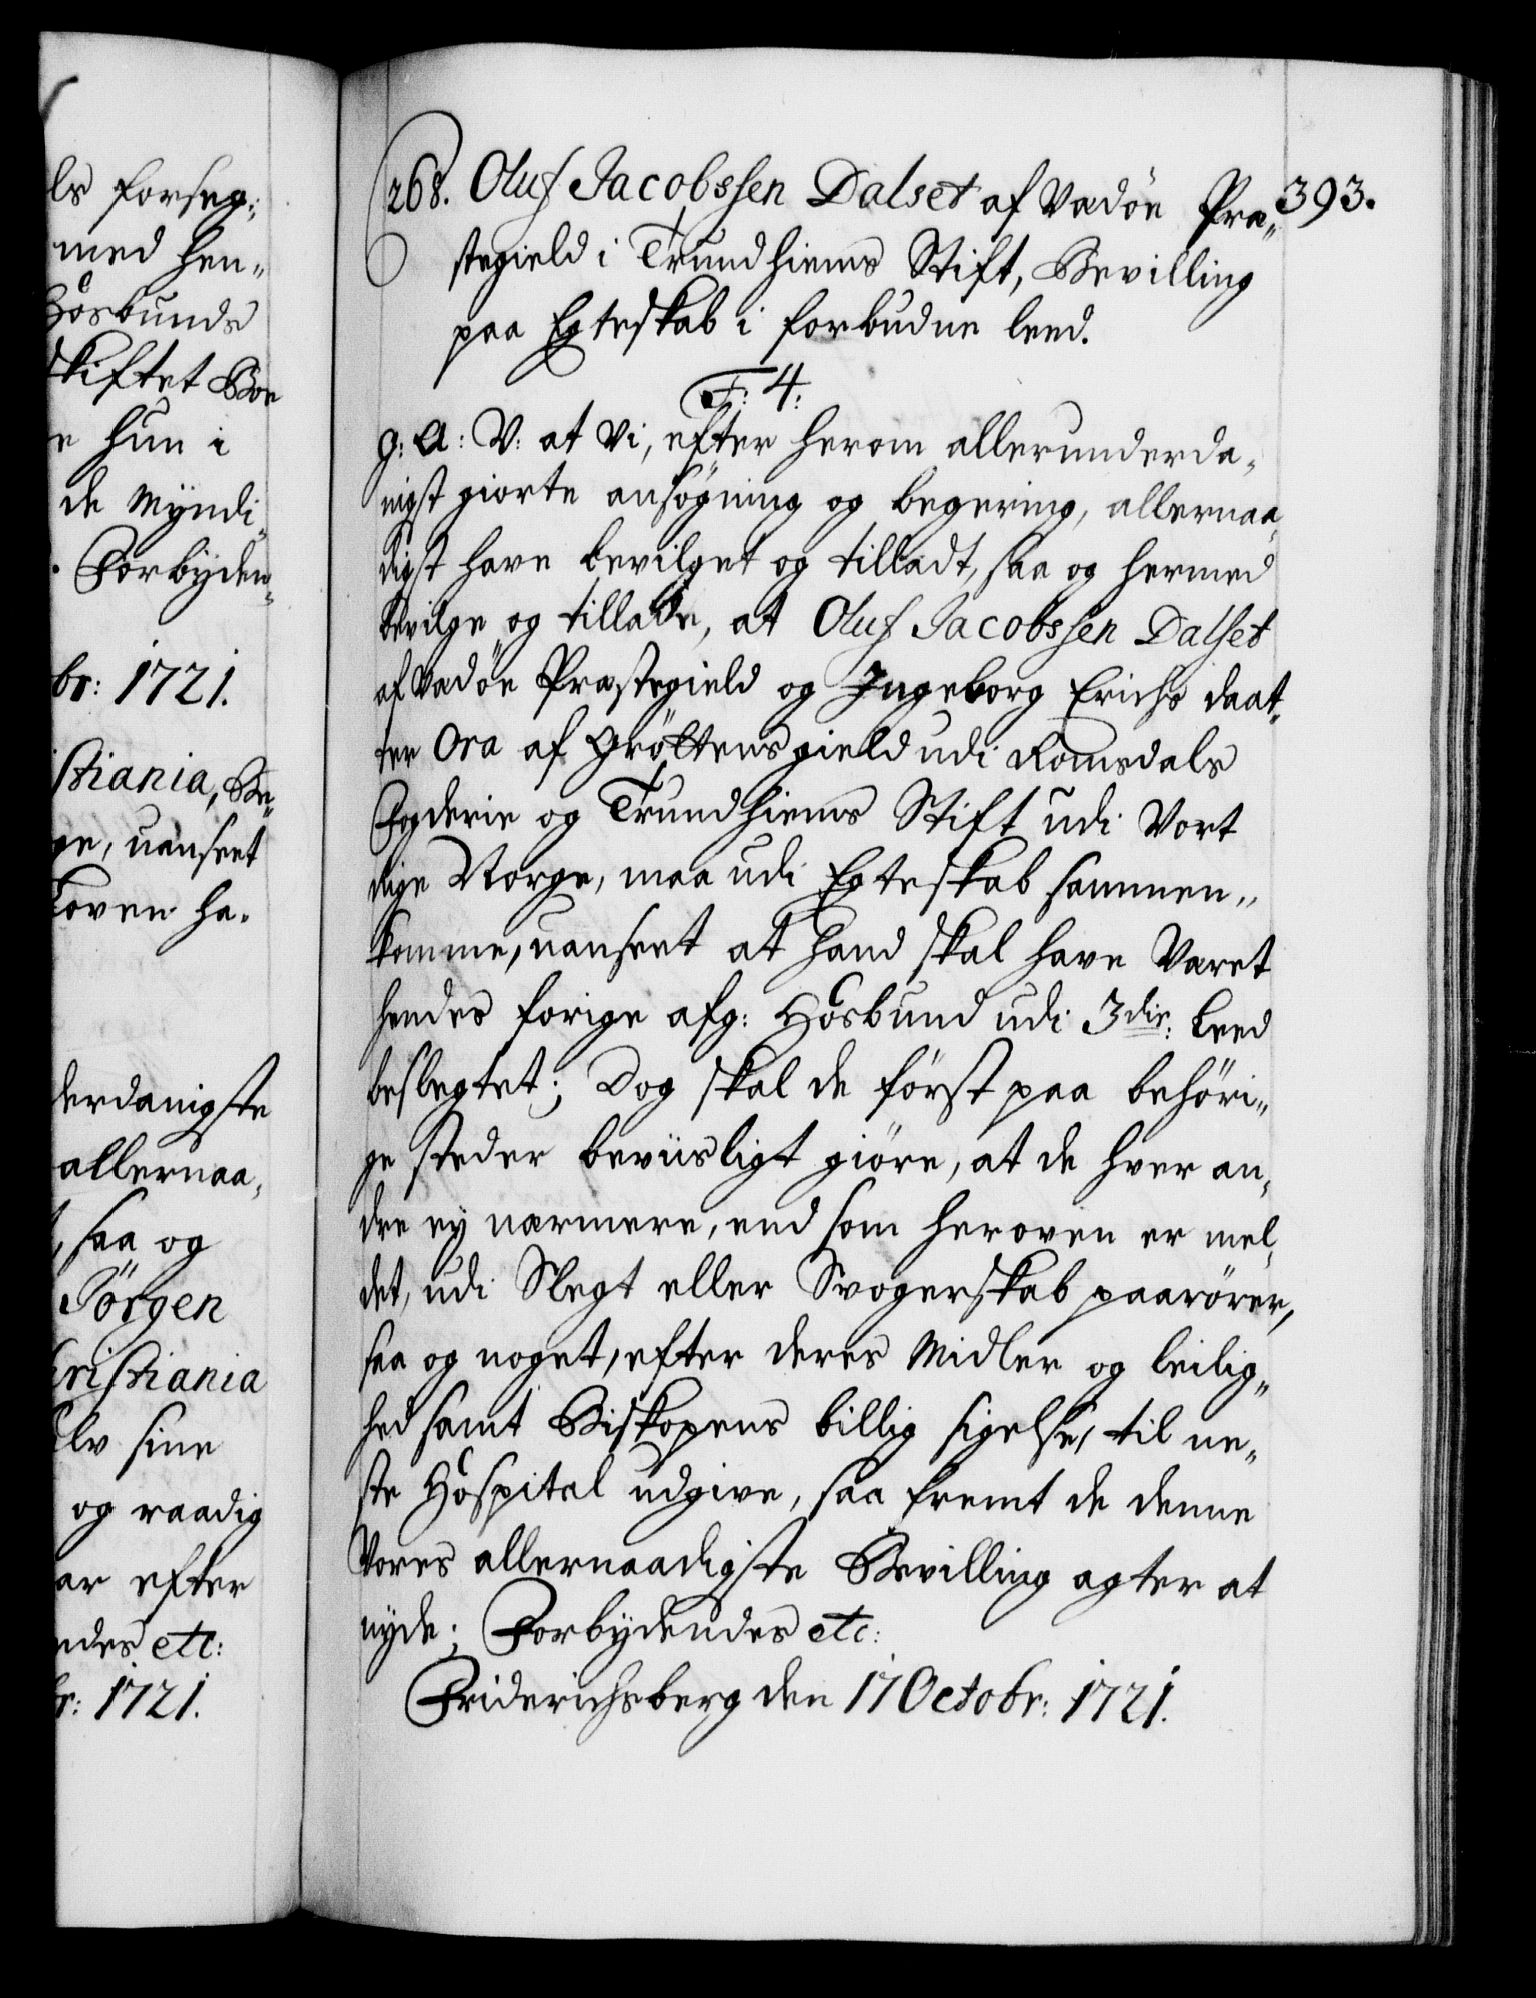 ls forseg:
med hen„
Hosbunds
skiftet Boe
e hun i
de Myndi„
. Forbyden„
br: 1721.
stiania, Be„
ge, uanseet
loven ha„
derdanigste
allernaa„
, saa og
Jörgen
hristiania
elv sine
og raadig
ar efter
ndes etc:
br: 1721.
393.
268. Oluf Jacobssen Dalset af Vadöe Præ„
stegield i Trundhiems Stift, Bevilling
paa Egteskab i forbudne leed.
F: 4:
G: A: V: at Vi, efter herom allerunderda„
nigst giorte ansögning og begering, allernaa„
digst have bevilget og tilladt, saa og hermed
bevilge og tillade, at Oluf Jacobssen Dalset
af Vadöe Præstegield og Ingeborg Erichs daat„
ter Ora af Gröttens gield udi Romsdals
Fogderie og Trundhiems Stift udi Vort
Rige Norge, maa udi Egteskab sammen„
komme, uanseet at hand skal have Været
hendes forige afg: Hosbund udi 3die: Leed
beslegtet; Dog skal de först paa behöri„
ge steder beviisligt giöre, at de hver an„
dre ey nærmere, end som heroven er mel„
det, udi Slegt eller Svogerskab paarörer,
saa og noget, efter deres Midler og leilig„
hed samt Biskopens billig sigelse, til ne„
ste Hospital udgive, saa fremt de denne
Vores allernaadigste Bevilling agter at
nyde; Forbydendes etc:
Friderichsberg den 17 Octobr: 1721.